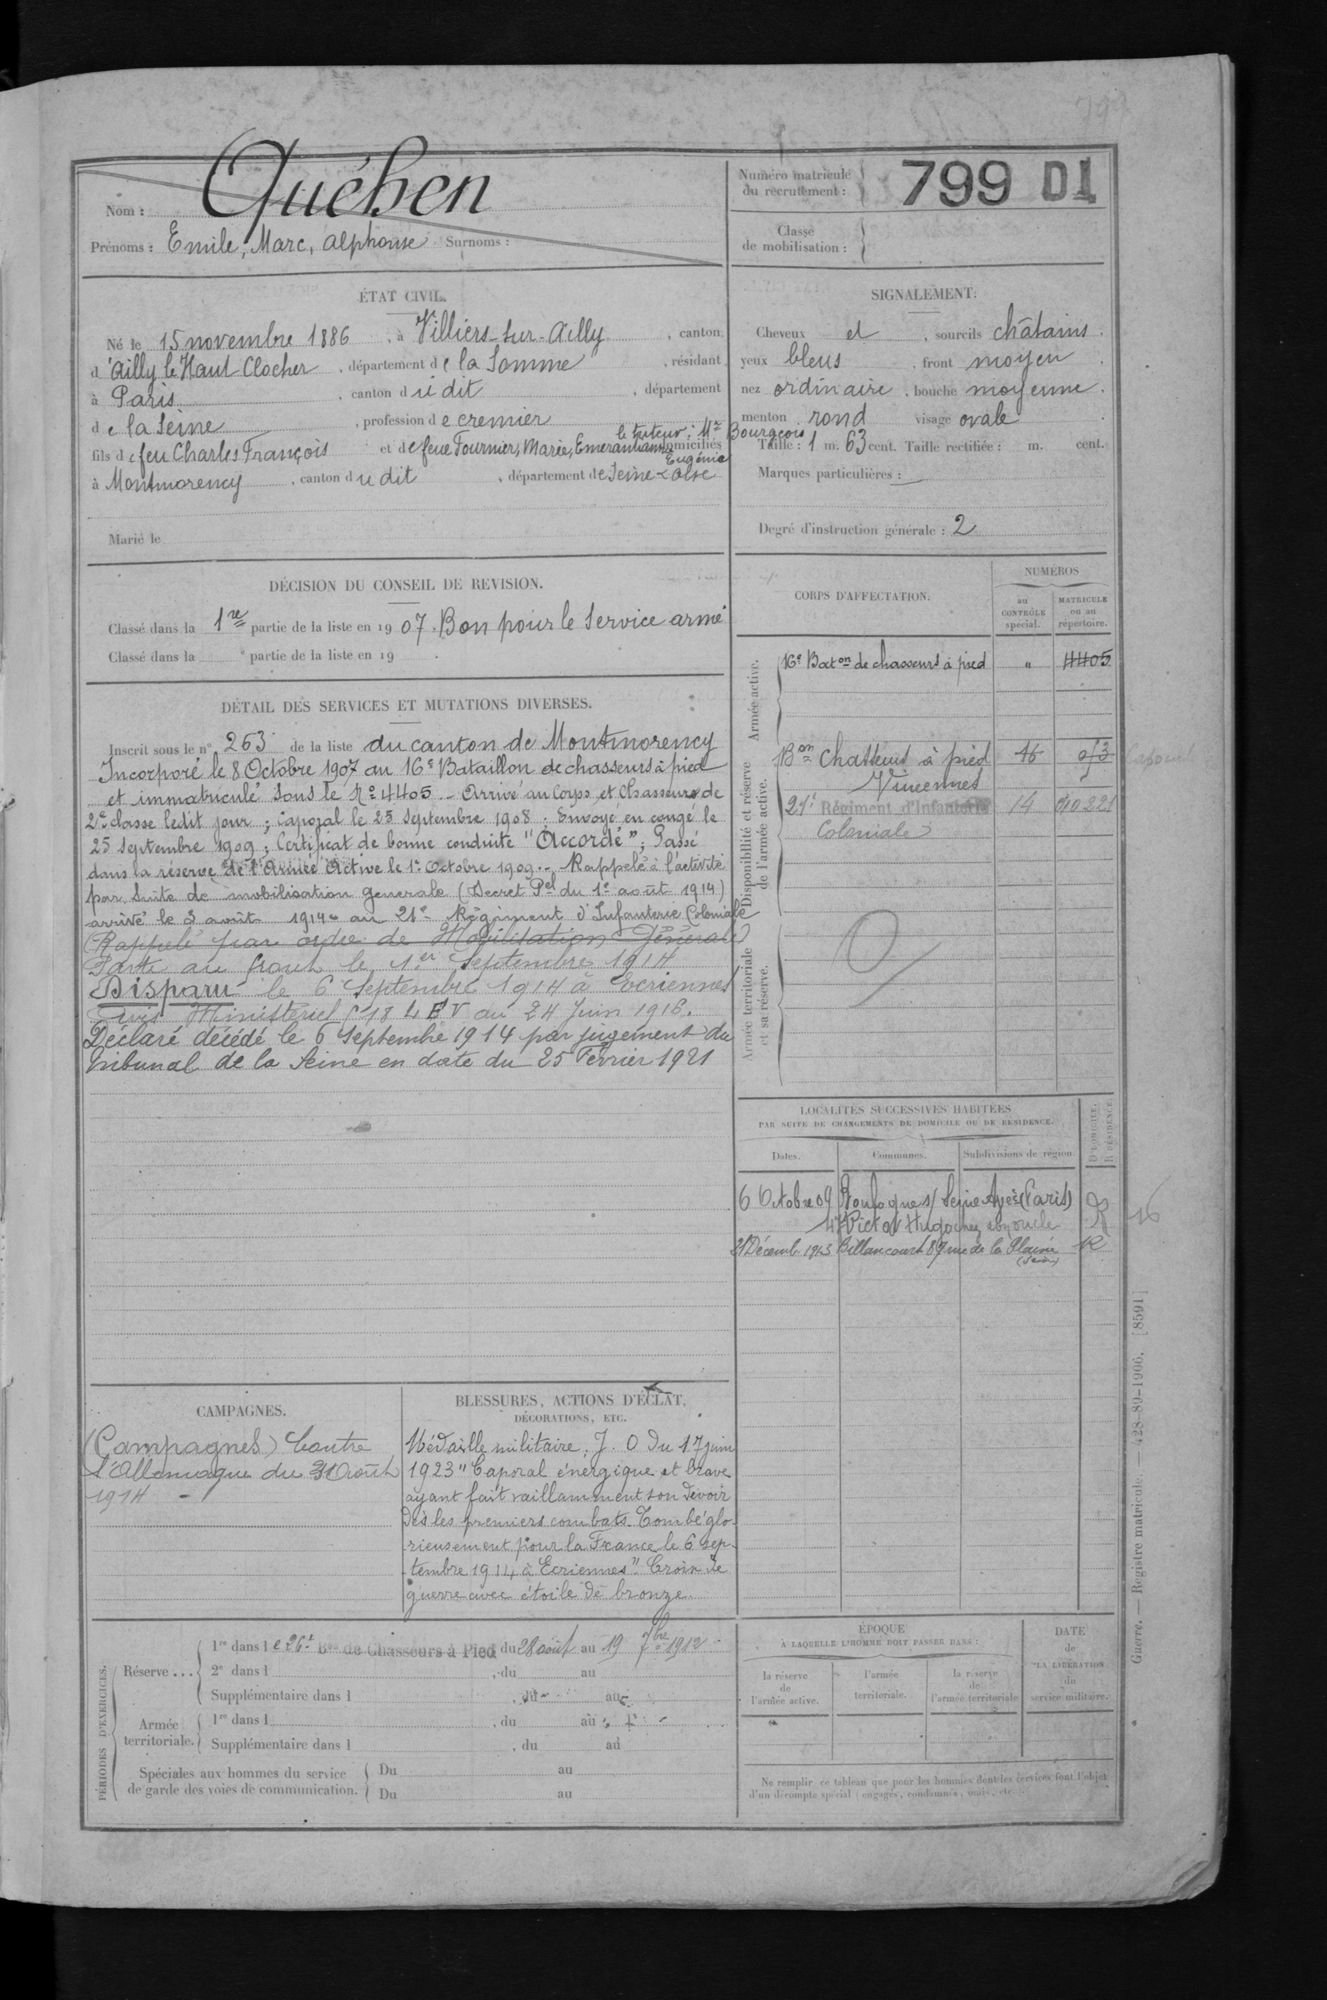 Nom : Quéhen
Prénoms : Emile, Marc, Alphonse Surnoms :
Numéro matricule du recrutement : 799 D1
Classe de mobilisation :
ÉTAT CIVIL.
Né le 15 novembre 1886, à Villiers-sur-Ailly, canton
d'Ailly le Haut Clocher, département de la Somme, résidant
à Paris, canton dudit, département
de la Seine, profession de cremier
le tuteur : Mr Bourgeois
fils de feu Charles François et de feue Fournier, Marie, Emerantianne Eugénie domiciliés
à Montmorency, canton dudit, département de Seine & Oise
Marié le
SIGNALEMENT.
Cheveux et, sourcils châtains.
yeux bleus, front moyen
nez ordinaire, bouche moyenne.
menton rond visage ovale
Taille : 1 m. 63 cent. Taille rectifiée : m. cent.
Marques particulières :
Degré d'instruction générale : 2
DÉCISION DU CONSEIL DE REVISION.
Classé dans la 1re partie de la liste en 1907. Bon pour le service armé
Classé dans la e partie de la liste en 19 .
DÉTAIL DES SERVICES ET MUTATIONS DIVERSES.
Inscrit sous le n° 263 de la liste du canton de Montmorency
Incorporé le 8 Octobre 1907 au 16e Bataillon de chasseurs à pied
et immatriculé sous le No 4405 - Arrivé au Corps et Chasseur de
2e classe ledit jour ; Caporal le 25 Septembre 1908 ; Envoyé en congé le
25 Septembre 1909 ; Certificat de bonne conduite "Accordé" ; Passé
dans la réserve de l'Armée Active le 1er Octobre 1909.- Rappelé à l'activité
par suite de mobilisation generale (Decret Pel du 1er août 1914)
arrivé le 3 août 1914 au 21e Régiment d'Infanterie Coloniale
(Rappelé par ordre de Mobilisation Générale)
Parti au front le 1er Septembre 1914
Disparu le 6 Septembre 1914 à Ecriennes
Avis Ministeriel du 24 Juin 1916.
Déclaré décédé le 6 Septembre 1914 par jugement du
Tribunal de la Seine en date du 25 Février 1921
CORPS D'AFFECTATION.
NUMÉROS
au CONTRÔLE spécial.
MATRICULE ou au répertoire.
Armée active.
16e Baton de chasseurs à pied " 4405
Disponibilité et réserve de l'armée active.
Bon Chasseurs à pied
Vincennes
21e Régiment d'Infanterie 14 010221
Coloniale
Armée territoriale et sa réserve.
LOCALITÉS SUCCESSIVES HABITÉES
PAR SUITE DE CHANGEMENTS DE DOMICILE OU DE RÉSIDENCE.
Dates. Communes. Subdivisions de région. D. DOMICILE. R. RÉSIDENCE.
6 Octobre 09 Boulogne s/ Seine (Paris) R
Victor Hugo chez oncle
21 Décemb 1913 Billancourt 89 rue de la Plaine R
(Seine)
CAMPAGNES.
(Campagnes) Contre
l'Allemagne du 3 Août
1914 -
BLESSURES, ACTIONS D'ÉCLAT,
DÉCORATIONS, ETC.
Médaille militaire, J. O du 17 juin
1923 "Caporal énergique et brave
ayant fait vaillamment son devoir
dès les premiers combats. Tombé glo-
rieusement pour la France, le 6 sep-
tembre 1914 à Ecriennes". Croix de
guerre avec étoile de bronze.
PÉRIODES D'EXERCICES.
Réserve ... 1re dans le 26e Bon de Chasseurs à Pied du 28 août au 19 7bre 1912
2e dans l , du au
Supplémentaire dans l , du au
Armée territoriale. 1re dans l , du au
Supplémentaire dans l , du au
Spéciales aux hommes du service de garde des voies de communication. Du au
Du au
ÉPOQUE
À LAQUELLE L'HOMME DOIT PASSER DANS :
la réserve de l'armée active.
l'armée territoriale.
la réserve de l'armée territoriale
DATE de LA LIBÉRATION du service militaire.
Ne remplir ce tableau que pour les hommes dont les services font l'objet
d'un décompte spécial (engagés, condamnés, omis, etc.
Guerre. — Registre matricule. — 428-89-1906. [8591]